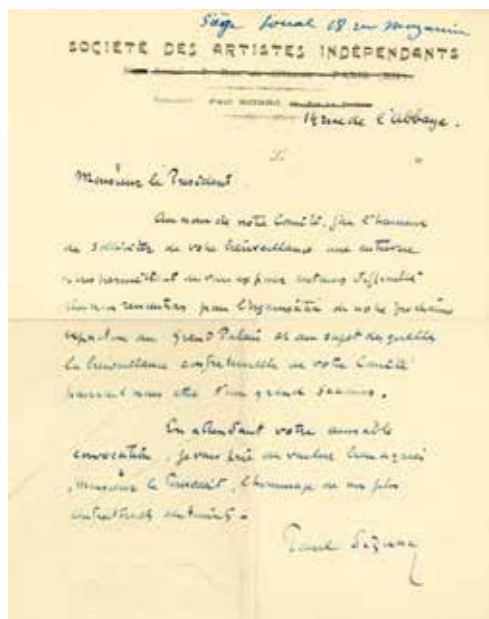 Siège social 18 rue Mazarin
SOCIÉTÉ DES ARTISTES INDÉPENDANTS
14 rue de l'Abbaye.
Monsieur le Président
Au nom de notre Comité, j'ai l'honneur
de solliciter de votre bienveillance une entrevue
nous permettant de vous exposer certaines difficultés
rencontrées pour l'organisation de notre prochaine
exposition au Grand Palais et au sujet desquelles
la bienveillance confraternelle de votre Comité
pourrait nous être d'un grand secours.
En attendant votre aimable
convocation, je vous prie de vouloir bien agréer
, Monsieur le Président, l'hommage de mes plus
Paul Signac